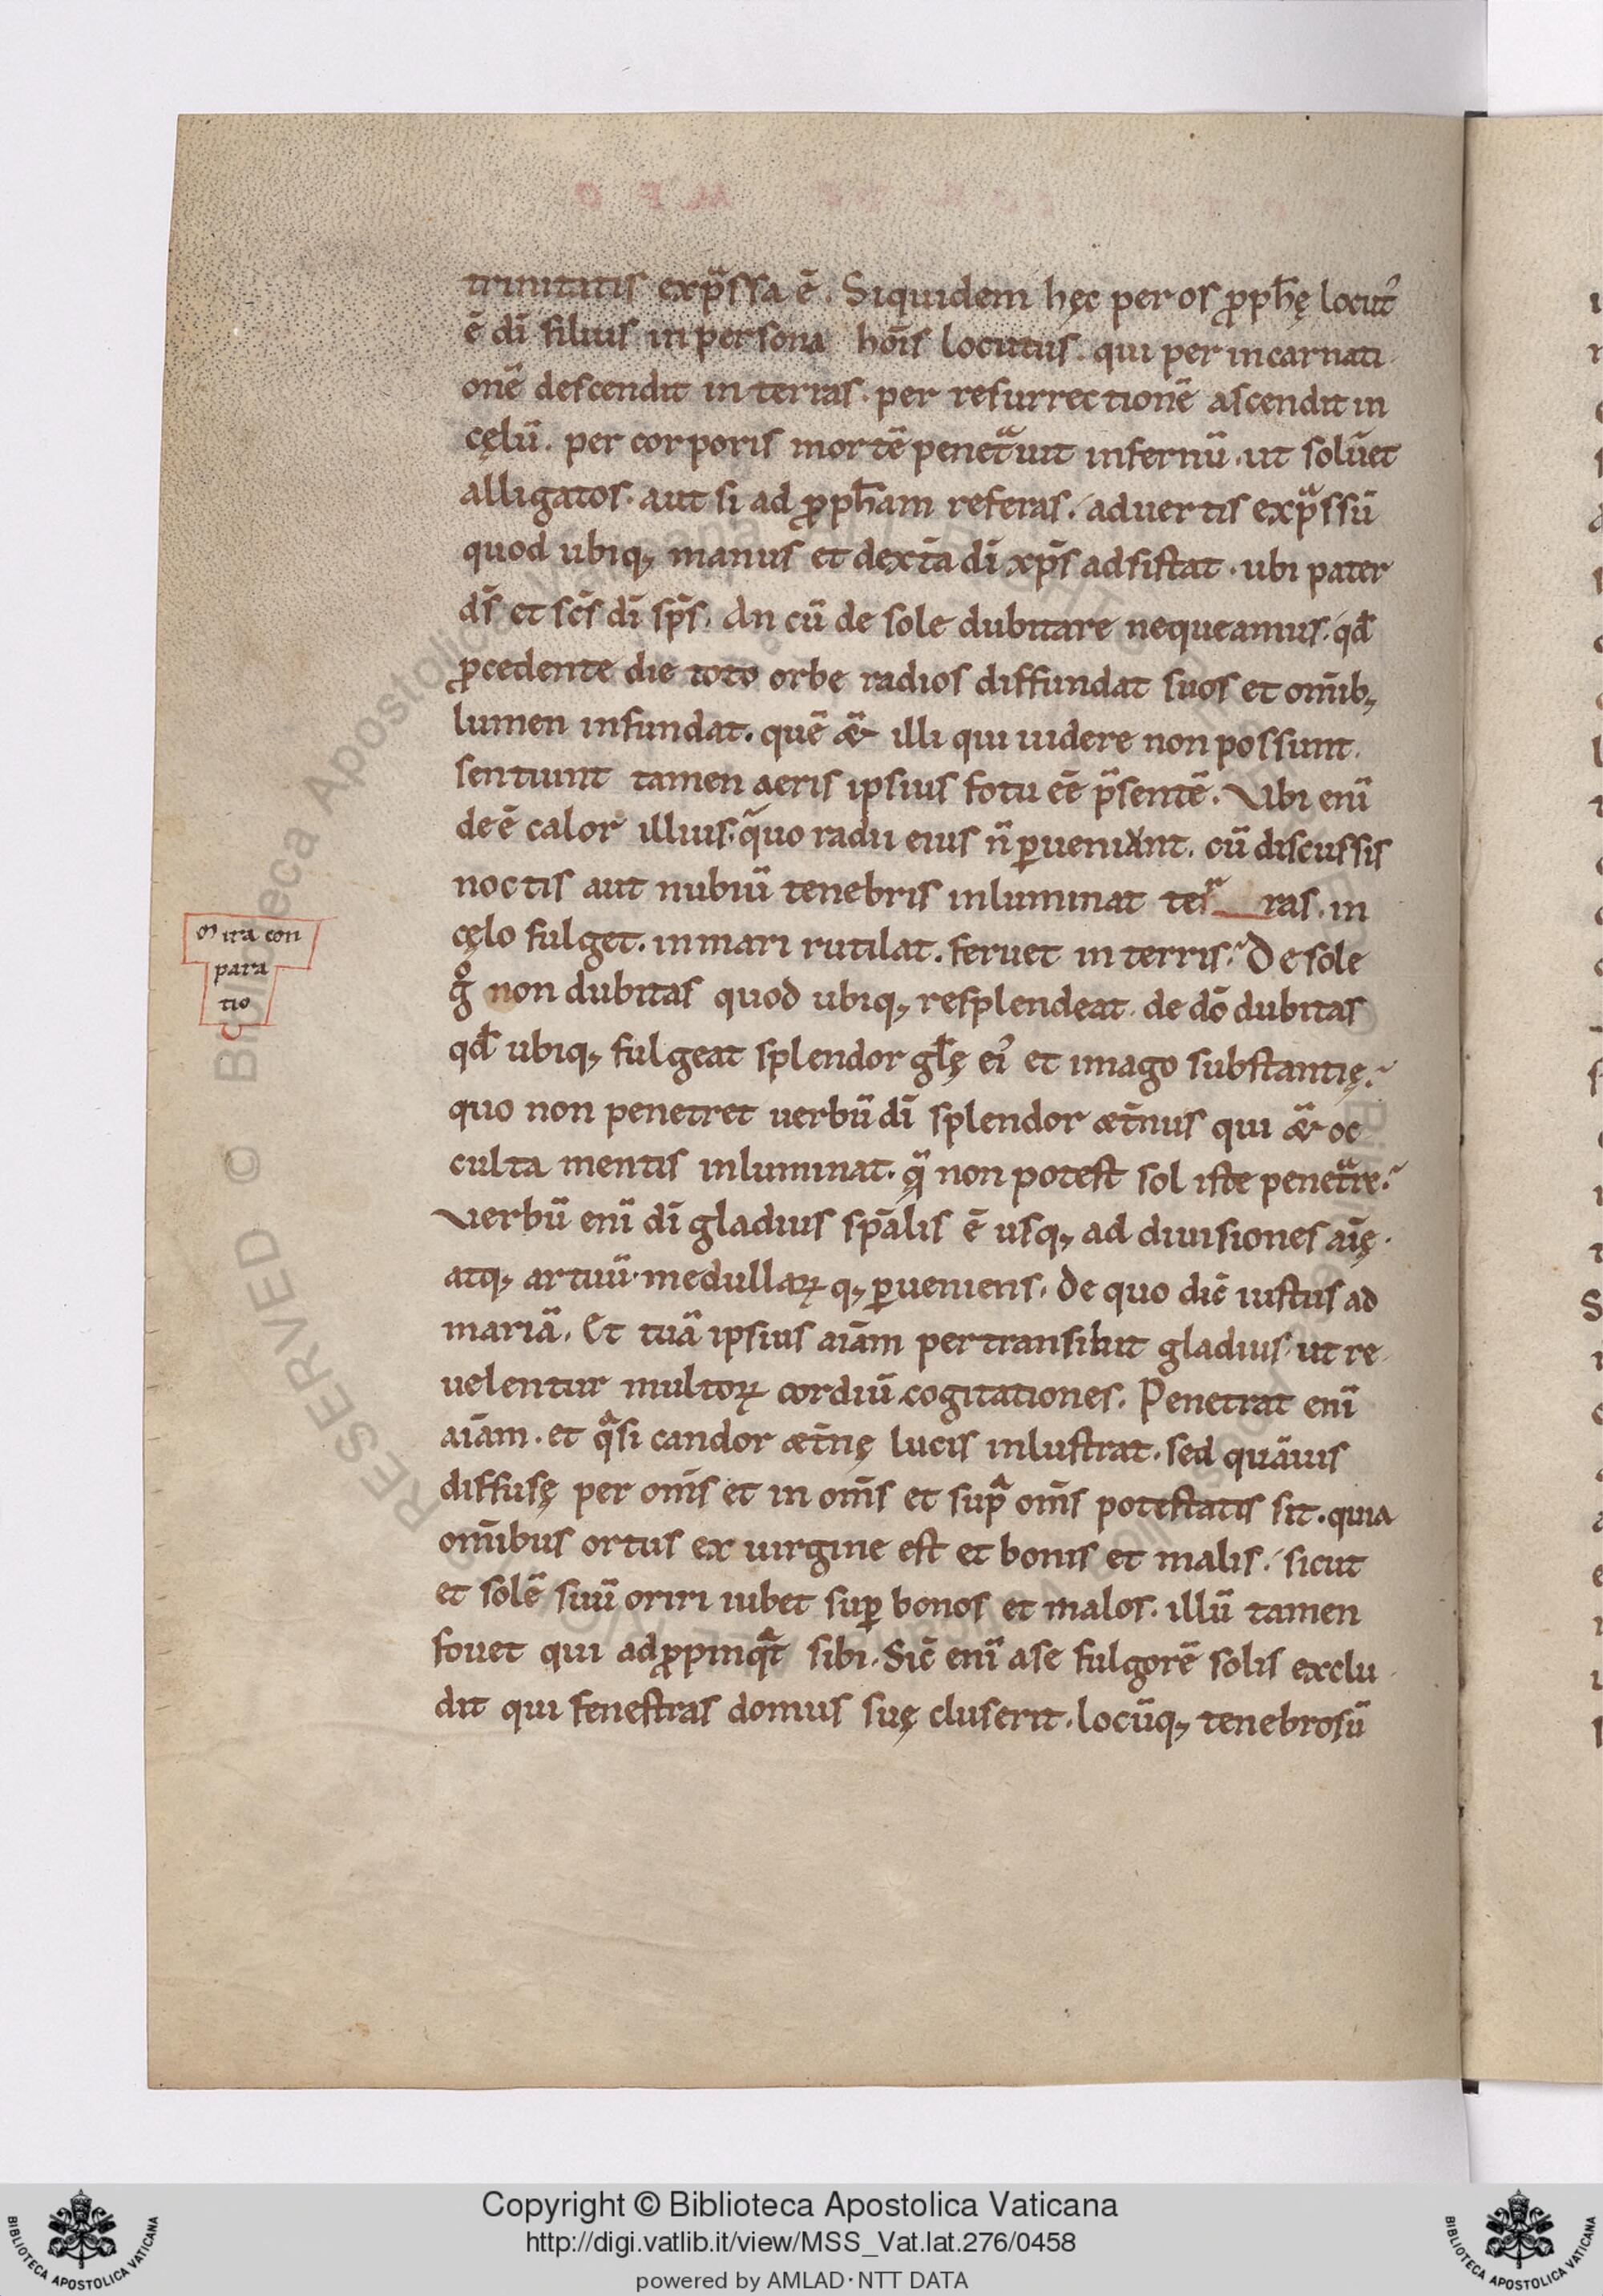 trinitatis exp̃ssa ē. Siquidem hęc per os ꝓph̄ę locut᾽
ē dī filius in persona hōis locutus. qui per incarnati
onē descendit in terras. per resurrectionē ascendit in
cęlū. per corporis mortē penetᷓuit infernū. ut soluēt
alligatos. aut si ad ꝓph̄am referas. aduertis exp̃ssū
quod ubiq; manus et dext̄a dī xp̄s adsistat. ubi pater
ds̄ et sc̄s dī sp̄s. An cū de sole dubitare nequeamus. qd̄
ꝓcedente die toto orbe radios diffundat suos et om̄ib;
lumen infundat. quē æ̃ illi qui uidere non possunt.
sentiunt tamen aeris ipsius fotu eē p̃sentē. Vbi enī
deē calor illius. q̄uo radii eius n̄ ꝑueniant. cū discussis
noctis aut nubiū tenebris inluminat ter ras. in
cęlo fulget. in mari rutilat. feruet in terris. De sole
gͦ non dubitas quod ubiq; resplendeat. de dō dubitas
qd̄ ubiq; fulgeat splendor gl̄ę ei᾽ et imago substantię.
quo non penetret uerbū dī splendor æt̄nus qui æ̃ oc
culta mentis inluminat. qᷓ non potest sol iste penetᷓre.
Verbū enī dī gladius sp̄alis ē usq; ad diuisiones aīę.
atq; artuū. medullaꝝ q; ꝑueniens. De quo dic̄ iustus ad
mariā. Et tuā ipsius aīam pertransibit gladius. ut re
uelentur multoꝝ cordiū cogitationes. Penetrat enī
aīam. et qᷓsi candor æt̄nę lucis inlustrat. sed quāuis
diffusę per om̄s et in om̄s et supᷓ om̄s potestatis sit. quia
om̄ibus ortus ex uirgine est et bonis et malis. sicut
et solē suū oriri iubet suꝑ bonos et malos. illū tamen
fouet qui adꝓpinqᷓt sibi. Sic̄ enī a se fulgorē solis exclu
dit qui fenestras domus suę cluserit. locūq; tenebrosū
Mira con
para
tio
Copyright © Biblioteca Apostolica Vaticana
http://digi.vatlib.it/view/MSS_Vat.lat.276/0458
powered by AMLAD·NTT DATA
BIBLIOTECA APOSTOLICA VATICANA
BIBLIOTECA APOSTOLICA VATICANA